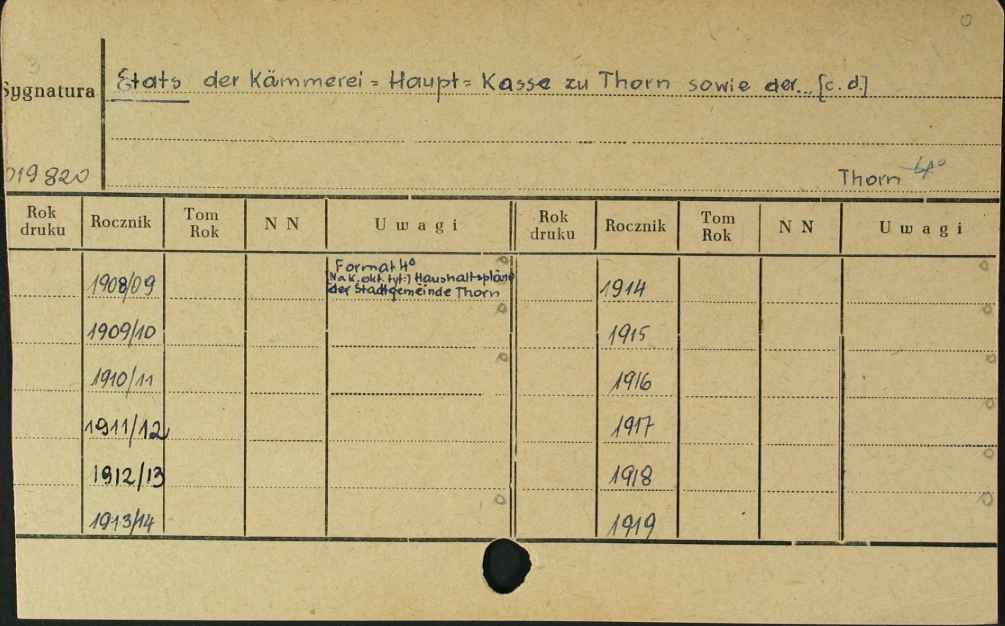 Sygnatura
Etats der Kämmerei = Haupt = Kasse zu Thorn sowie der... [c. d.]
019820
Thorn 4°
Rok druku Rocznik Tom Rok N N Uwagi Rok druku Rocznik Tom Rok N N Uwagi
1908/09 Format 4° 1914
(Na k. okt. tyt:) Haushaltspläne
der Stadtgemeinde Thorn
1909/10 1915
1910/11 1916
1911/12 1917
1912/13 1918
1913/14 1919